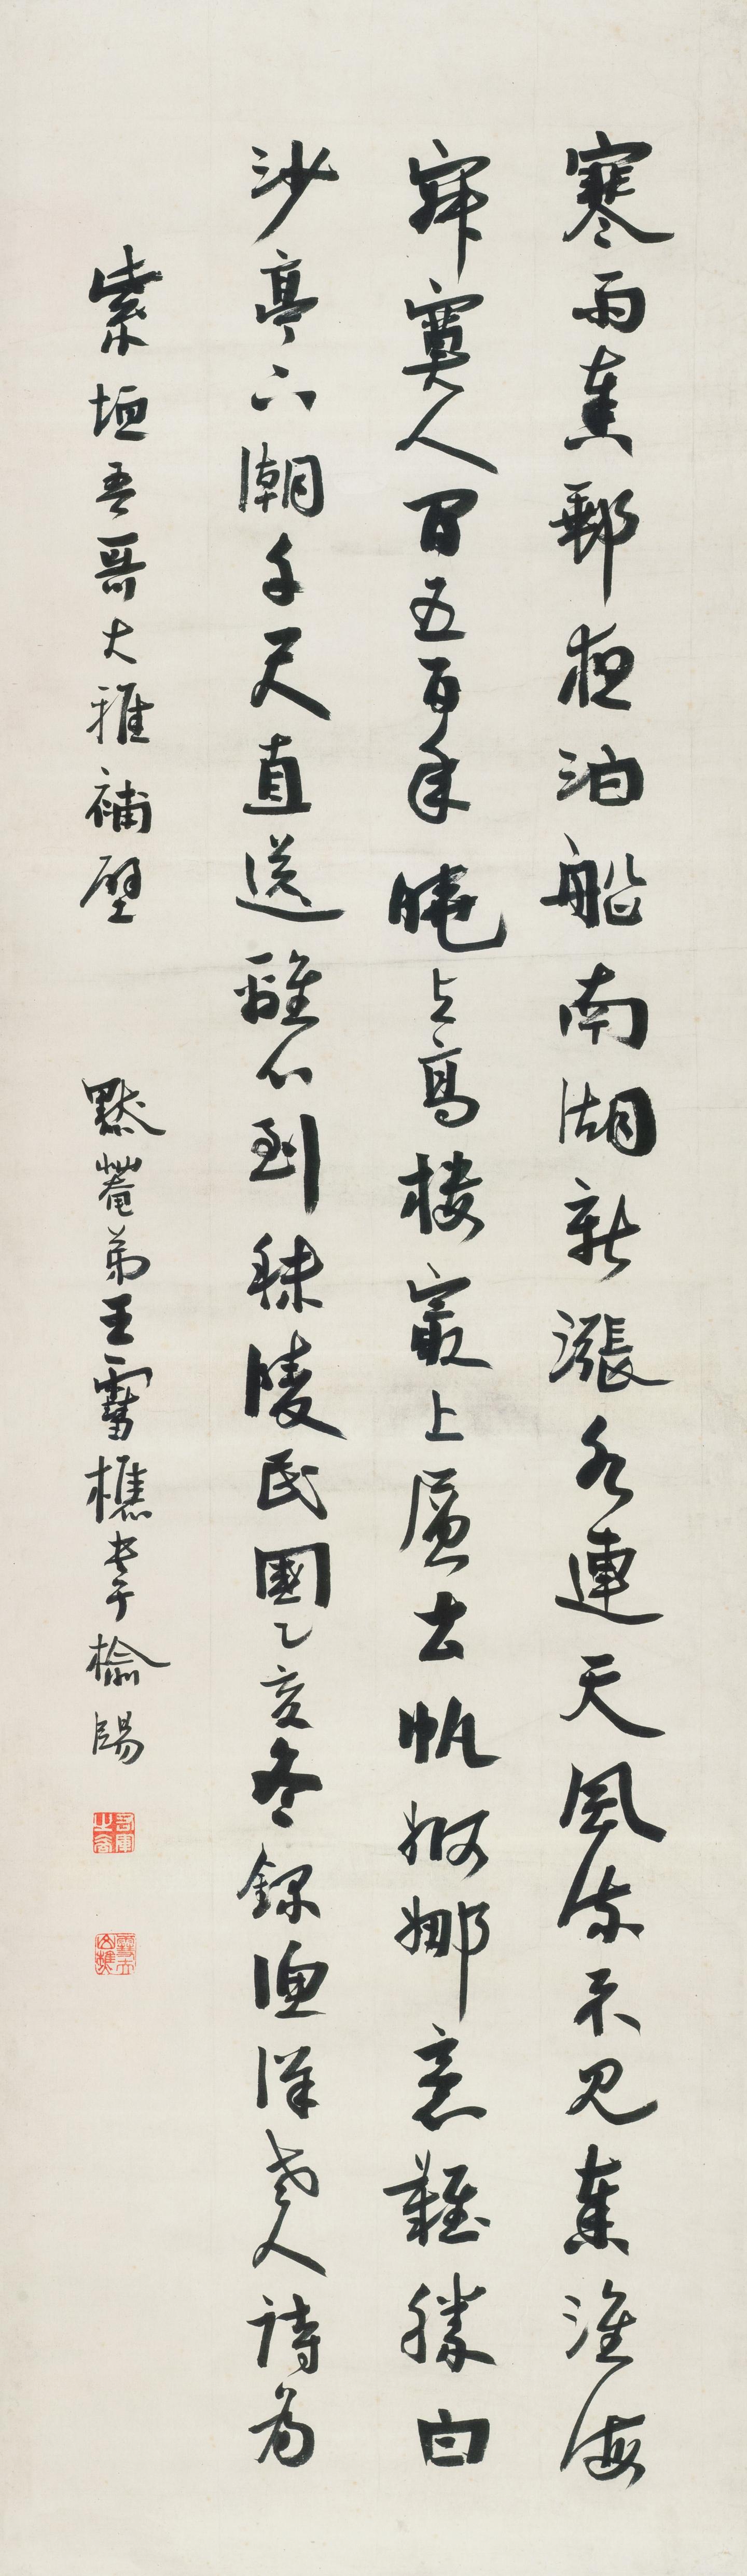 寒雨秦郵夜泊船南湖新漲水連天風流不見秦淮海
寂寞人間五百年曉上高樓最上層去帆婀娜意難勝白
沙亭下潮千尺直送離心到秣陵民國乙亥冬錄漁洋老人詩為
紫垣吾哥大雅補壁 默菴弟王雪樵書于榆陽